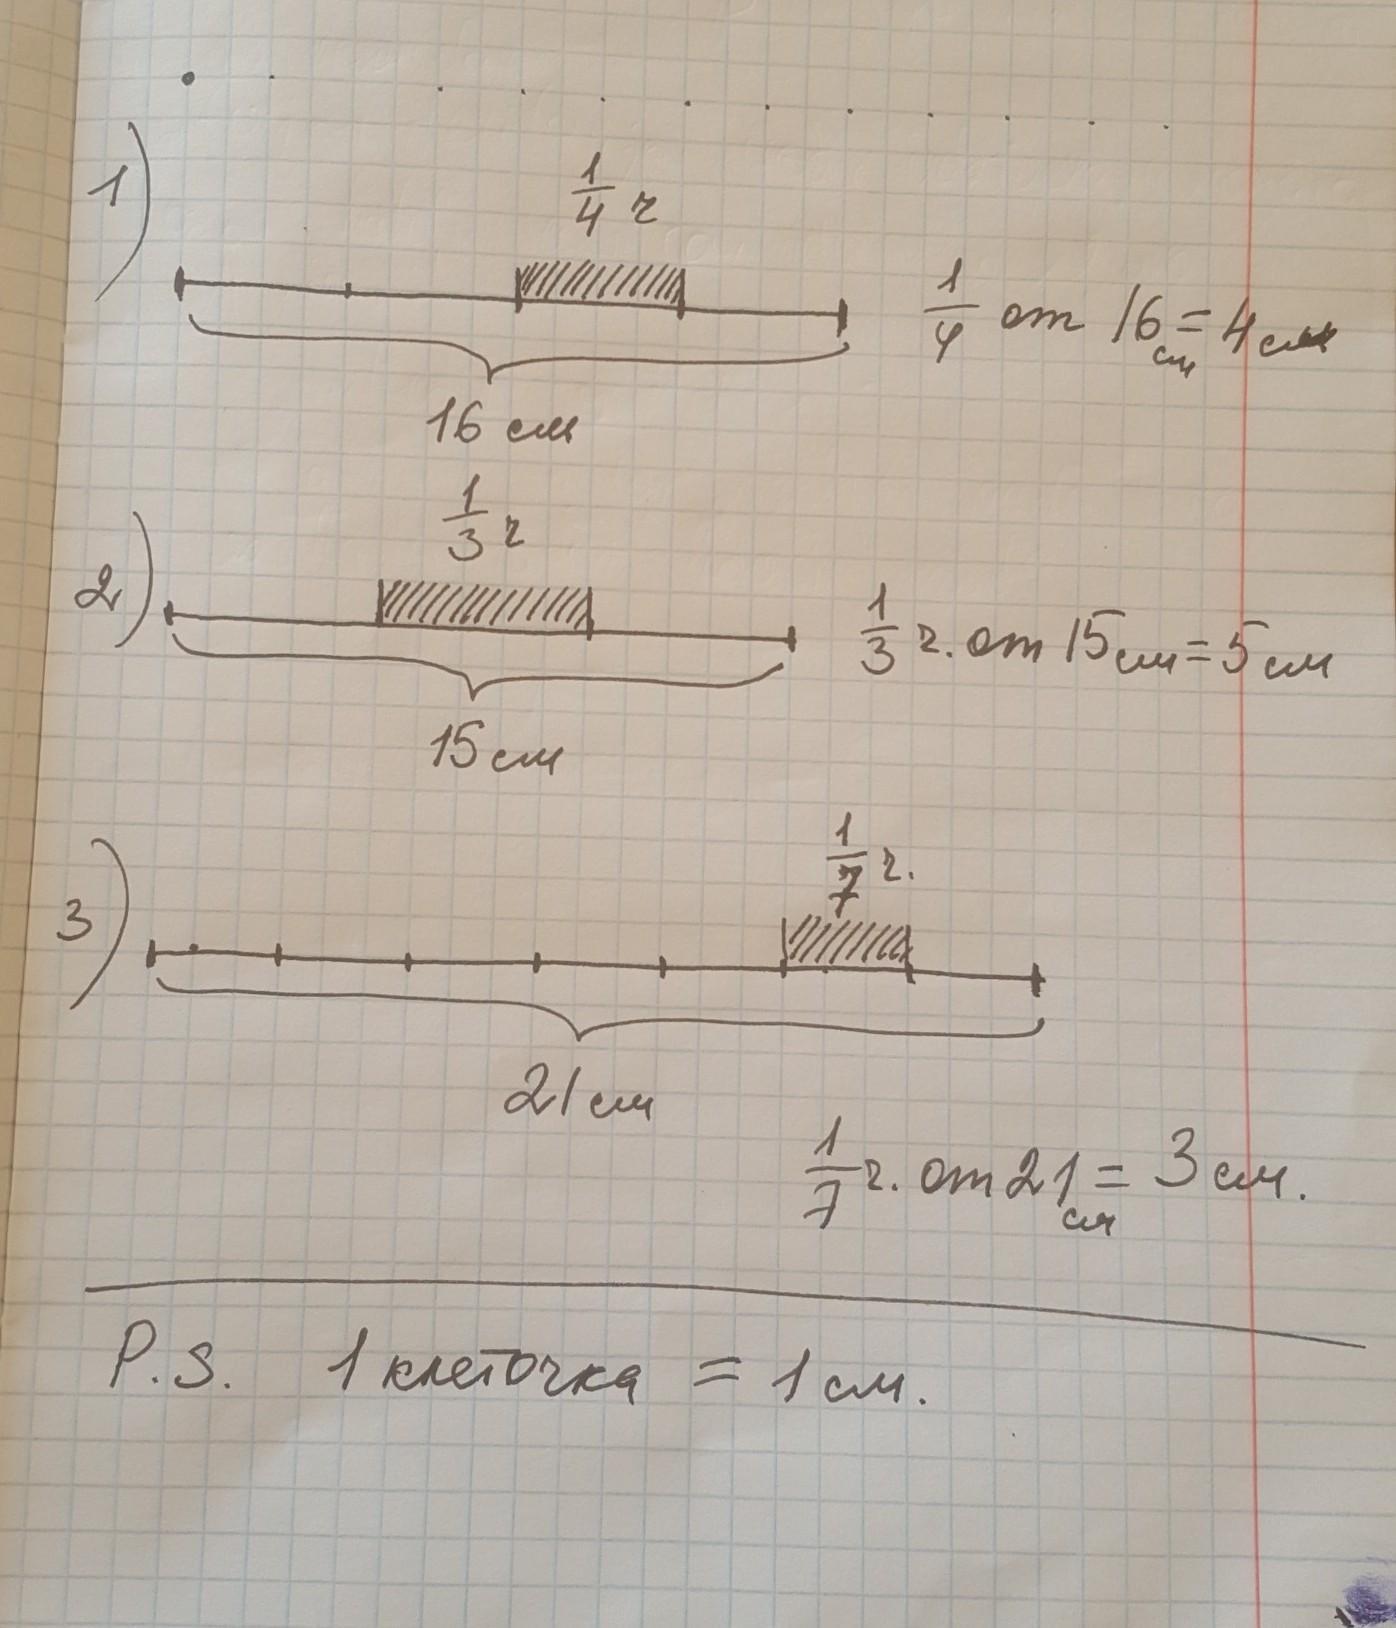 1)
1/4 ч
1/4 от 16 см = 4 см
16 см
1/3 ч
2)
1/3 ч. от 15 см = 5 см
15 см
1/7 ч.
3)
21 см
1/7 ч. от 21 см = 3 см.
P.S. 1 клеточка = 1 см.